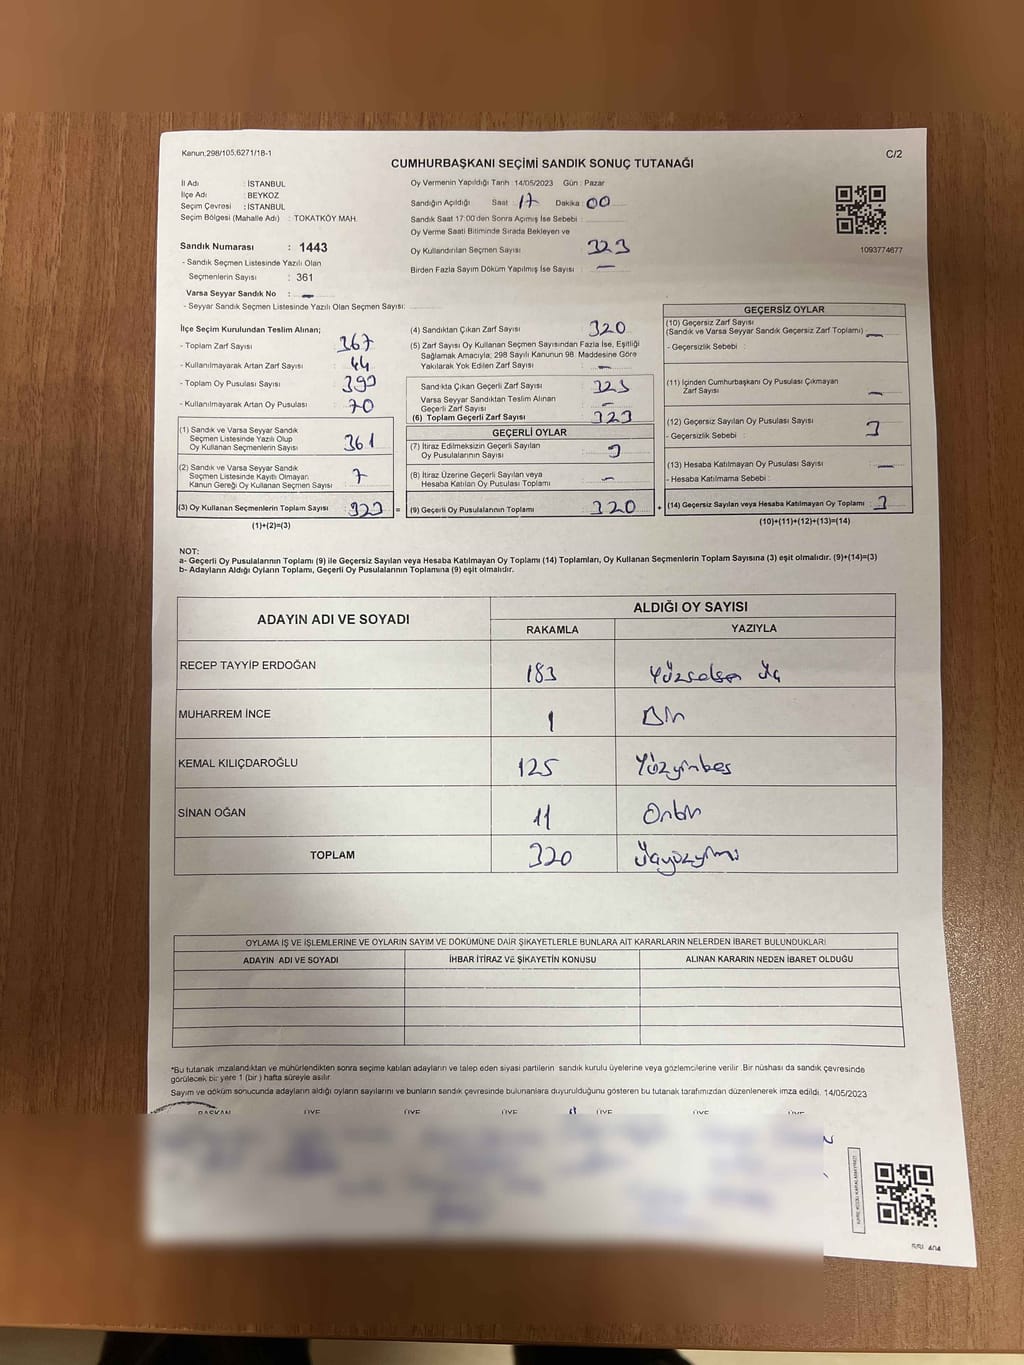 Kanun:298/105,6271/18-1
C/2
CUMHURBAŞKANI SEÇİMİ SANDIK SONUÇ TUTANAĞI
İl Adı : İSTANBUL
İlçe Adı : BEYKOZ
Seçim Çevresi : İSTANBUL
Seçim Bölgesi (Mahalle Adı) : TOKATKÖY MAH.
Sandık Numarası : 1443
- Sandık Seçmen Listesinde Yazılı Olan
Seçmenlerin Sayısı : 361
Varsa Seyyar Sandık No : —
- Seyyar Sandık Seçmen Listesinde Yazılı Olan Seçmen Sayısı:
Oy Vermenin Yapıldığı Tarih :14/05/2023 Gün : Pazar
Sandığın Açıldığı Saat 17 Dakika 00
Sandık Saat 17:00'den Sonra Açımış İse Sebebi :
Oy Verme Saati Bitiminde Sırada Bekleyen ve
Oy Kullandırılan Seçmen Sayısı 323
Birden Fazla Sayım Döküm Yapılmış İse Sayısı : —
1093774677
İlçe Seçim Kurulundan Teslim Alınan;
- Toplam Zarf Sayısı : 367
- Kullanılmayarak Artan Zarf Sayısı : 44
- Toplam Oy Pusulası Sayısı : 390
- Kullanılmayarak Artan Oy Pusulası : 70
(1) Sandık ve Varsa Seyyar Sandık
Seçmen Listesinde Yazılı Olup
Oy Kullanan Seçmenlerin Sayısı 361
(2) Sandık ve Varsa Seyyar Sandık
Seçmen Listesinde Kayıtlı Olmayan
Kanun Gereği Oy Kullanan Seçmen Sayısı 7
(3) Oy Kullanan Seçmenlerin Toplam Sayısı 323 =
(1)+(2)=(3)
(4) Sandıktan Çıkan Zarf Sayısı : 320
(5) Zarf Sayısı Oy Kullanan Seçmen Sayısından Fazla İse, Eşitliği
Sağlamak Amacıyla; 298 Sayılı Kanunun 98. Maddesine Göre
Yakılarak Yok Edilen Zarf Sayısı : —
Sandıkta Çıkan Geçerli Zarf Sayısı : 323
Varsa Seyyar Sandıktan Teslim Alınan
Geçerli Zarf Sayısı : —
(6) Toplam Geçerli Zarf Sayısı : 323
GEÇERLİ OYLAR
(7) İtiraz Edilmeksizin Geçerli Sayılan
Oy Pusulalarının Sayısı :
(8) İtiraz Üzerine Geçerli Sayılan veya
Hesaba Katılan Oy Pusulası Toplamı : —
(9) Geçerli Oy Pusulalarının Toplamı : 320 +
GEÇERSİZ OYLAR
(10) Geçersiz Zarf Sayısı
(Sandık ve Varsa Seyyar Sandık Geçersiz Zarf Toplamı) : —
- Geçersizlik Sebebi :
(11) İçinden Cumhurbaşkanı Oy Pusulası Çıkmayan
Zarf Sayısı : —
(12) Geçersiz Sayılan Oy Pusulası Sayısı : 3
- Geçersizlik Sebebi :
(13) Hesaba Katılmayan Oy Pusulası Sayısı : —
- Hesaba Katılmama Sebebi :
(14) Geçersiz Sayılan veya Hesaba Katılmayan Oy Toplamı : 3
(10)+(11)+(12)+(13)=(14)
NOT:
a- Geçerli Oy Pusulalarının Toplamı (9) ile Geçersiz Sayılan veya Hesaba Katılmayan Oy Toplamı (14) Toplamları, Oy Kullanan Seçmenlerin Toplam Sayısına (3) eşit olmalıdır. (9)+(14)=(3)
b- Adayların Aldığı Oyların Toplamı, Geçerli Oy Pusulalarının Toplamına (9) eşit olmelidir.
ADAYIN ADI VE SOYADI
ALDIĞI OY SAYISI
RAKAMLA YAZIYLA
RECEP TAYYİP ERDOĞAN 183 Yüzseksen Üç
MUHARREM İNCE 1 Bir
KEMAL KILIÇDAROĞLU 125 Yüzyirmibeş
SİNAN OĞAN 11 Onbir
TOPLAM 320 Üçyüzyirmi
OYLAMA İŞ VE İŞLEMLERİNE VE OYLARIN SAYIM VE DÖKÜMÜNE DAİR ŞİKAYETLERLE BUNLARA AİT KARARLARIN NELERDEN İBARET BULUNDUKLARI
ADAYIN ADI VE SOYADI İHBAR İTİRAZ VE ŞİKAYETİN KONUSU ALINAN KARARIN NEDEN İBARET OLDUĞU
*Bu tutanak imzalandıktan ve mühürlendikten sonra seçime katılan adayların ve talep eden siyasi partilerin sandık kurulu üyelerine veya gözlemcilerine verilir. Bir nüshası da sandık çevresinde
görülecek bir yere 1 (bir) hafta süreyle asılır.
Sayım ve döküm sonucunda adayların aldığı oyların sayılarını ve bunların sandık çevresinde bulunanlara duyurulduğunu gösteren bu tutanak tarafımızdan düzenlenerek imza edildi. 14/05/2023
BAŞKAN ÜYE ÜYE ÜYE ÜYE ÜYE ÜYE